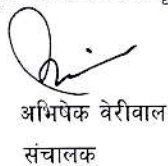 अभिषेक वेरीवाल
संचालक